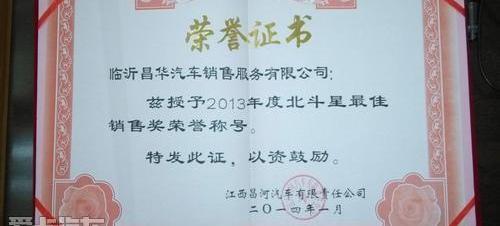 荣誉证书
临沂昌华汽车销售服务有限公司:
兹授予2013年度北斗星最佳
销售奖荣誉称号。
特发此证，以资鼓励。
江西昌河汽车有限责任公司
二〇一四年一月
爱卡汽车